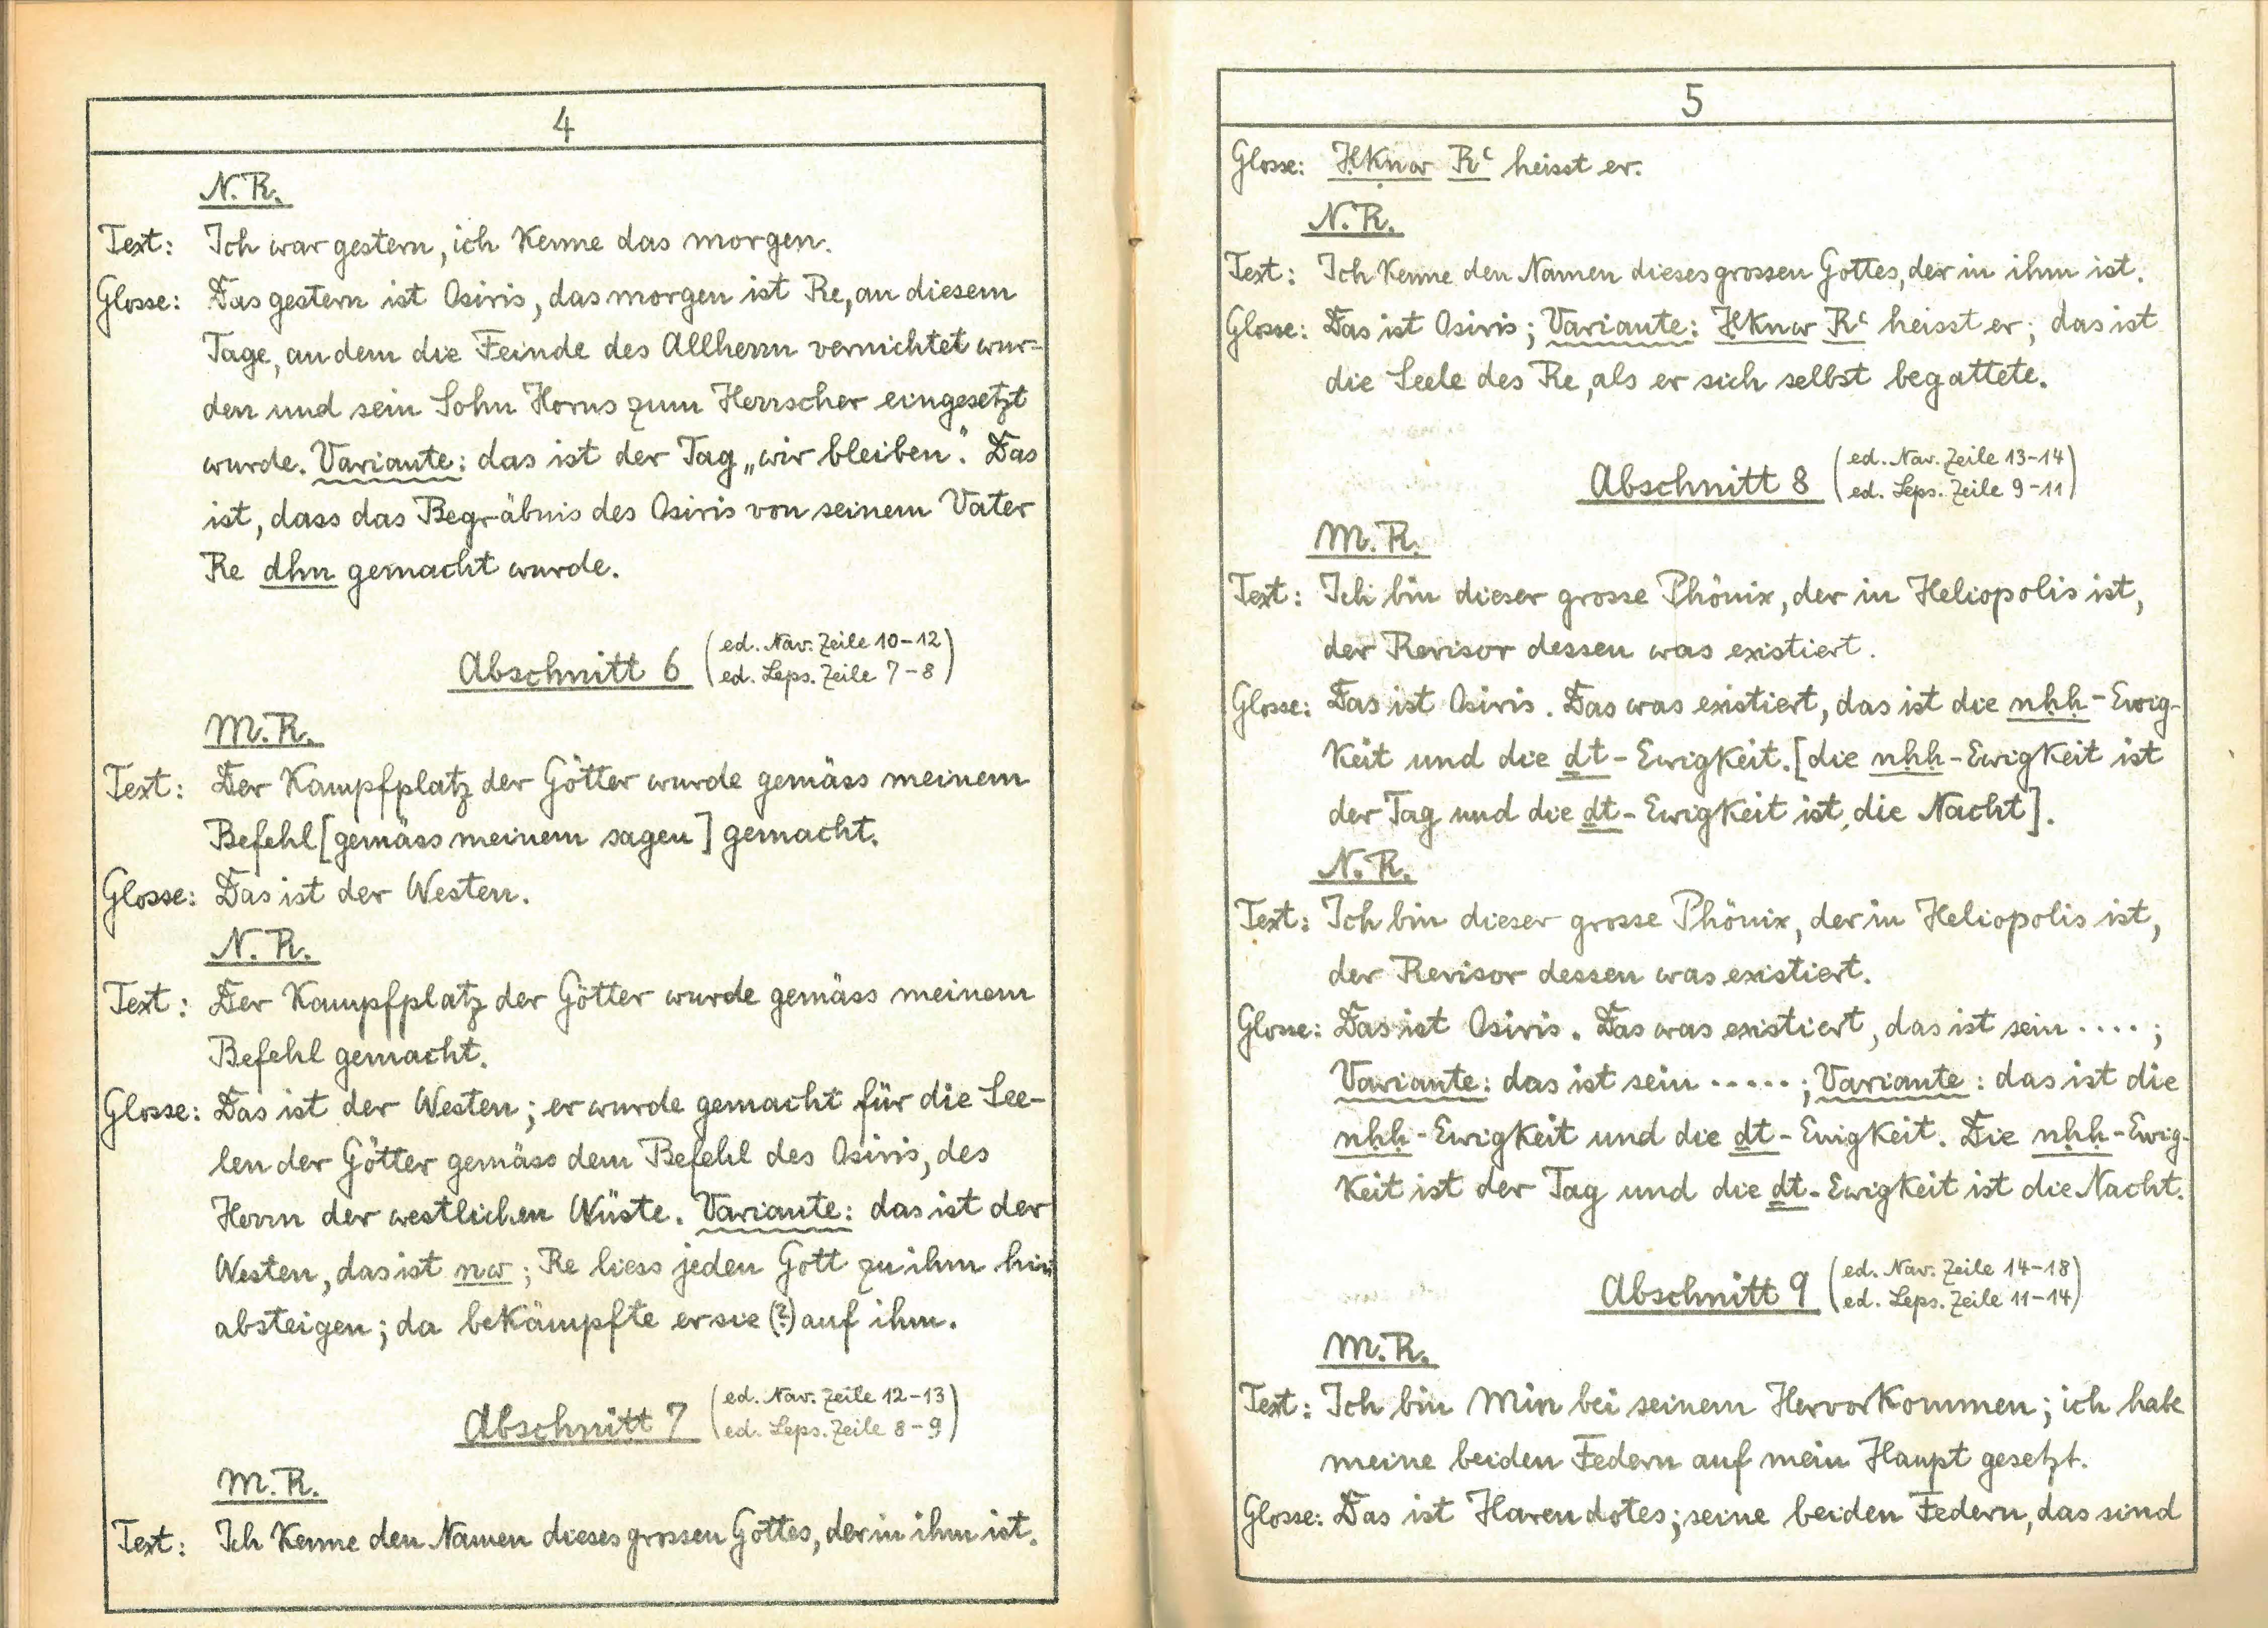 4
N.R.
Text: Ich war gestern, ich kenne das morgen.
Glosse: Das gestern ist Osiris, das morgen ist Re, an diesem
Tage, an dem die Feinde des Allherrn vernichtet wur-
den und sein Sohn Horus zum Herrscher eingesetzt
wurde. Variante: das ist der Tag „wir bleiben“. Das
ist, dass das Begräbnis des Osiris von seinem Vater
Re dhn gemacht wurde.
Abschnitt 6 (ed. Nav. Zeile 10-12)
(ed. Leps. Zeile 7-8)
M.R.
Text: Der Kampfplatz der Götter wurde gemäss meinem
Befehl [gemäss meinem sagen] gemacht.
Glosse: Das ist der Westen.
N.R.
Text: Der Kampfplatz der Götter wurde gemäss meinem
Befehl gemacht.
Glosse: Das ist der Westen; er wurde gemacht für die See-
len der Götter gemäss dem Befehl des Osiris, des
Herrn der westlichen Wüste. Variante: das ist der
Westen, das ist nw; Re liess jeden Gott zu ihm hin
absteigen; da bekämpfte er sie (?) auf ihm.
Abschnitt 7 (ed. Nav. Zeile 12-13)
(ed. Leps. Zeile 8-9)
M.R.
Text: Ich kenne den Namen dieses grossen Gottes, der in ihm ist.
5
Glosse: Ḥknw Rꜥ heisst er.
N.R.
Text: Ich kenne den Namen dieses grossen Gottes, der in ihm ist.
Glosse: Das ist Osiris; Variante: Ḥknw Rꜥ heisst er; das ist
die Seele des Re, als er sich selbst begattete.
Abschnitt 8 (ed. Nav. Zeile 13-14)
(ed. Leps. Zeile 9-11)
M.R.
Text: Ich bin dieser grosse Phönix, der in Heliopolis ist,
der Revisor dessen was existiert.
Glosse: Das ist Osiris. Das was existiert, das ist die nḥḥ-Ewig-
keit und die ḏt-Ewigkeit. [die nḥḥ-Ewigkeit ist
der Tag und die ḏt-Ewigkeit ist die Nacht].
N.R.
Text: Ich bin dieser grosse Phönix, der in Heliopolis ist,
der Revisor dessen was existiert.
Glosse: Das ist Osiris. Das was existiert, das ist sein ....;
Variante: das ist sein .....; Variante: das ist die
nḥḥ-Ewigkeit und die ḏt-Ewigkeit. Die nḥḥ-Ewig-
keit ist der Tag und die ḏt-Ewigkeit ist die Nacht.
Abschnitt 9 (ed. Nav. Zeile 14-18)
(ed. Leps. Zeile 11-14)
M.R.
Text: Ich bin Min bei seinem Hervorkommen; ich habe
meine beiden Federn auf mein Haupt gesetzt.
Glosse: Das ist Harendotes; seine beiden Federn, das sind